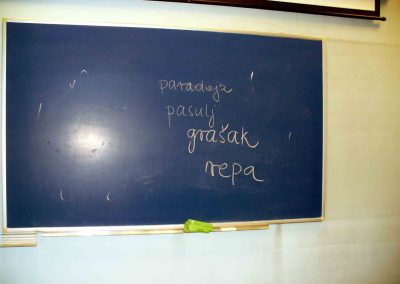 paradajz
pasulj
grašak
repa